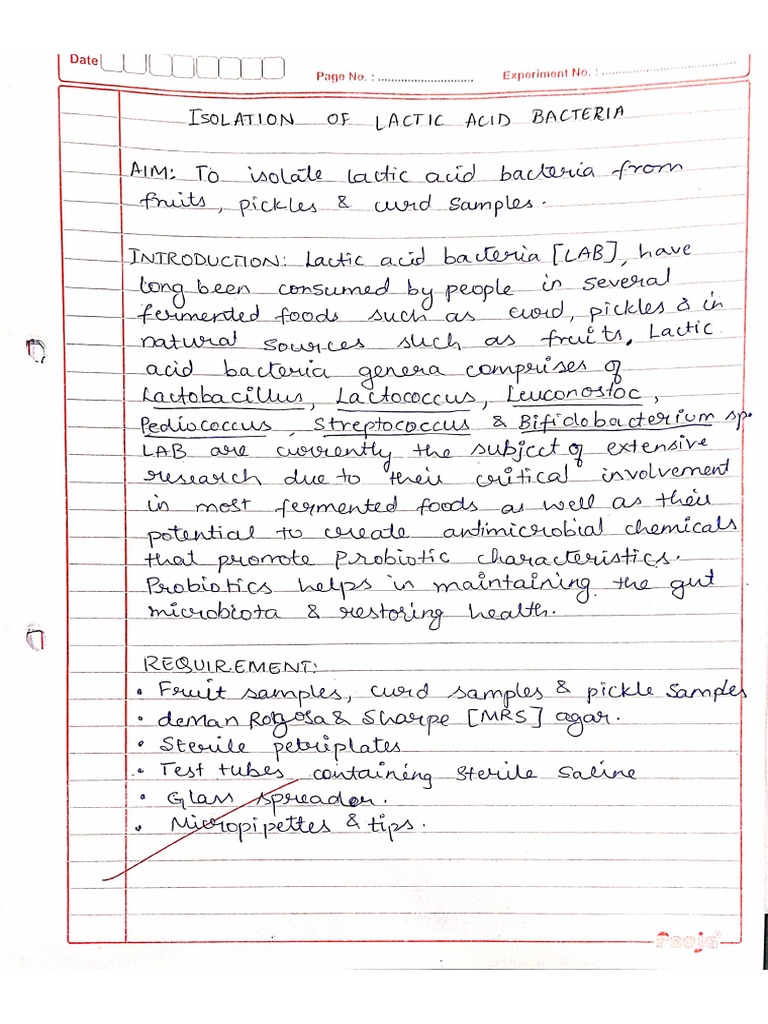 Date
Page No. : ............................
Experiment No. : ............................
ISOLATION OF LACTIC ACID BACTERIA
AIM: To isolate lactic acid bacteria from
fruits, pickles & curd samples.
INTRODUCTION: Lactic acid bacteria [LAB], have
long been consumed by people in several
fermented foods such as curd, pickles & in
natural sources such as fruits. Lactic
acid bacteria genera comprises of
Lactobacillus, Lactococcus, Leuconostoc,
Pediococcus, Streptococcus & Bifidobacterium sp.
LAB are currently the subject of extensive
research due to their critical involvement
in most fermented foods as well as their
potential to create antimicrobial chemicals
that promote Probiotic characteristics.
Probiotics helps in maintaining the gut
microbiota & restoring health.
REQUIREMENT:
• Fruit samples, curd samples & pickle samples
• deman Rogosa & Sharpe [MRS] agar.
• Sterile petriplates
• Test tubes containing sterile saline
• Glass spreader.
• Micropipettes & tips.
Pooja